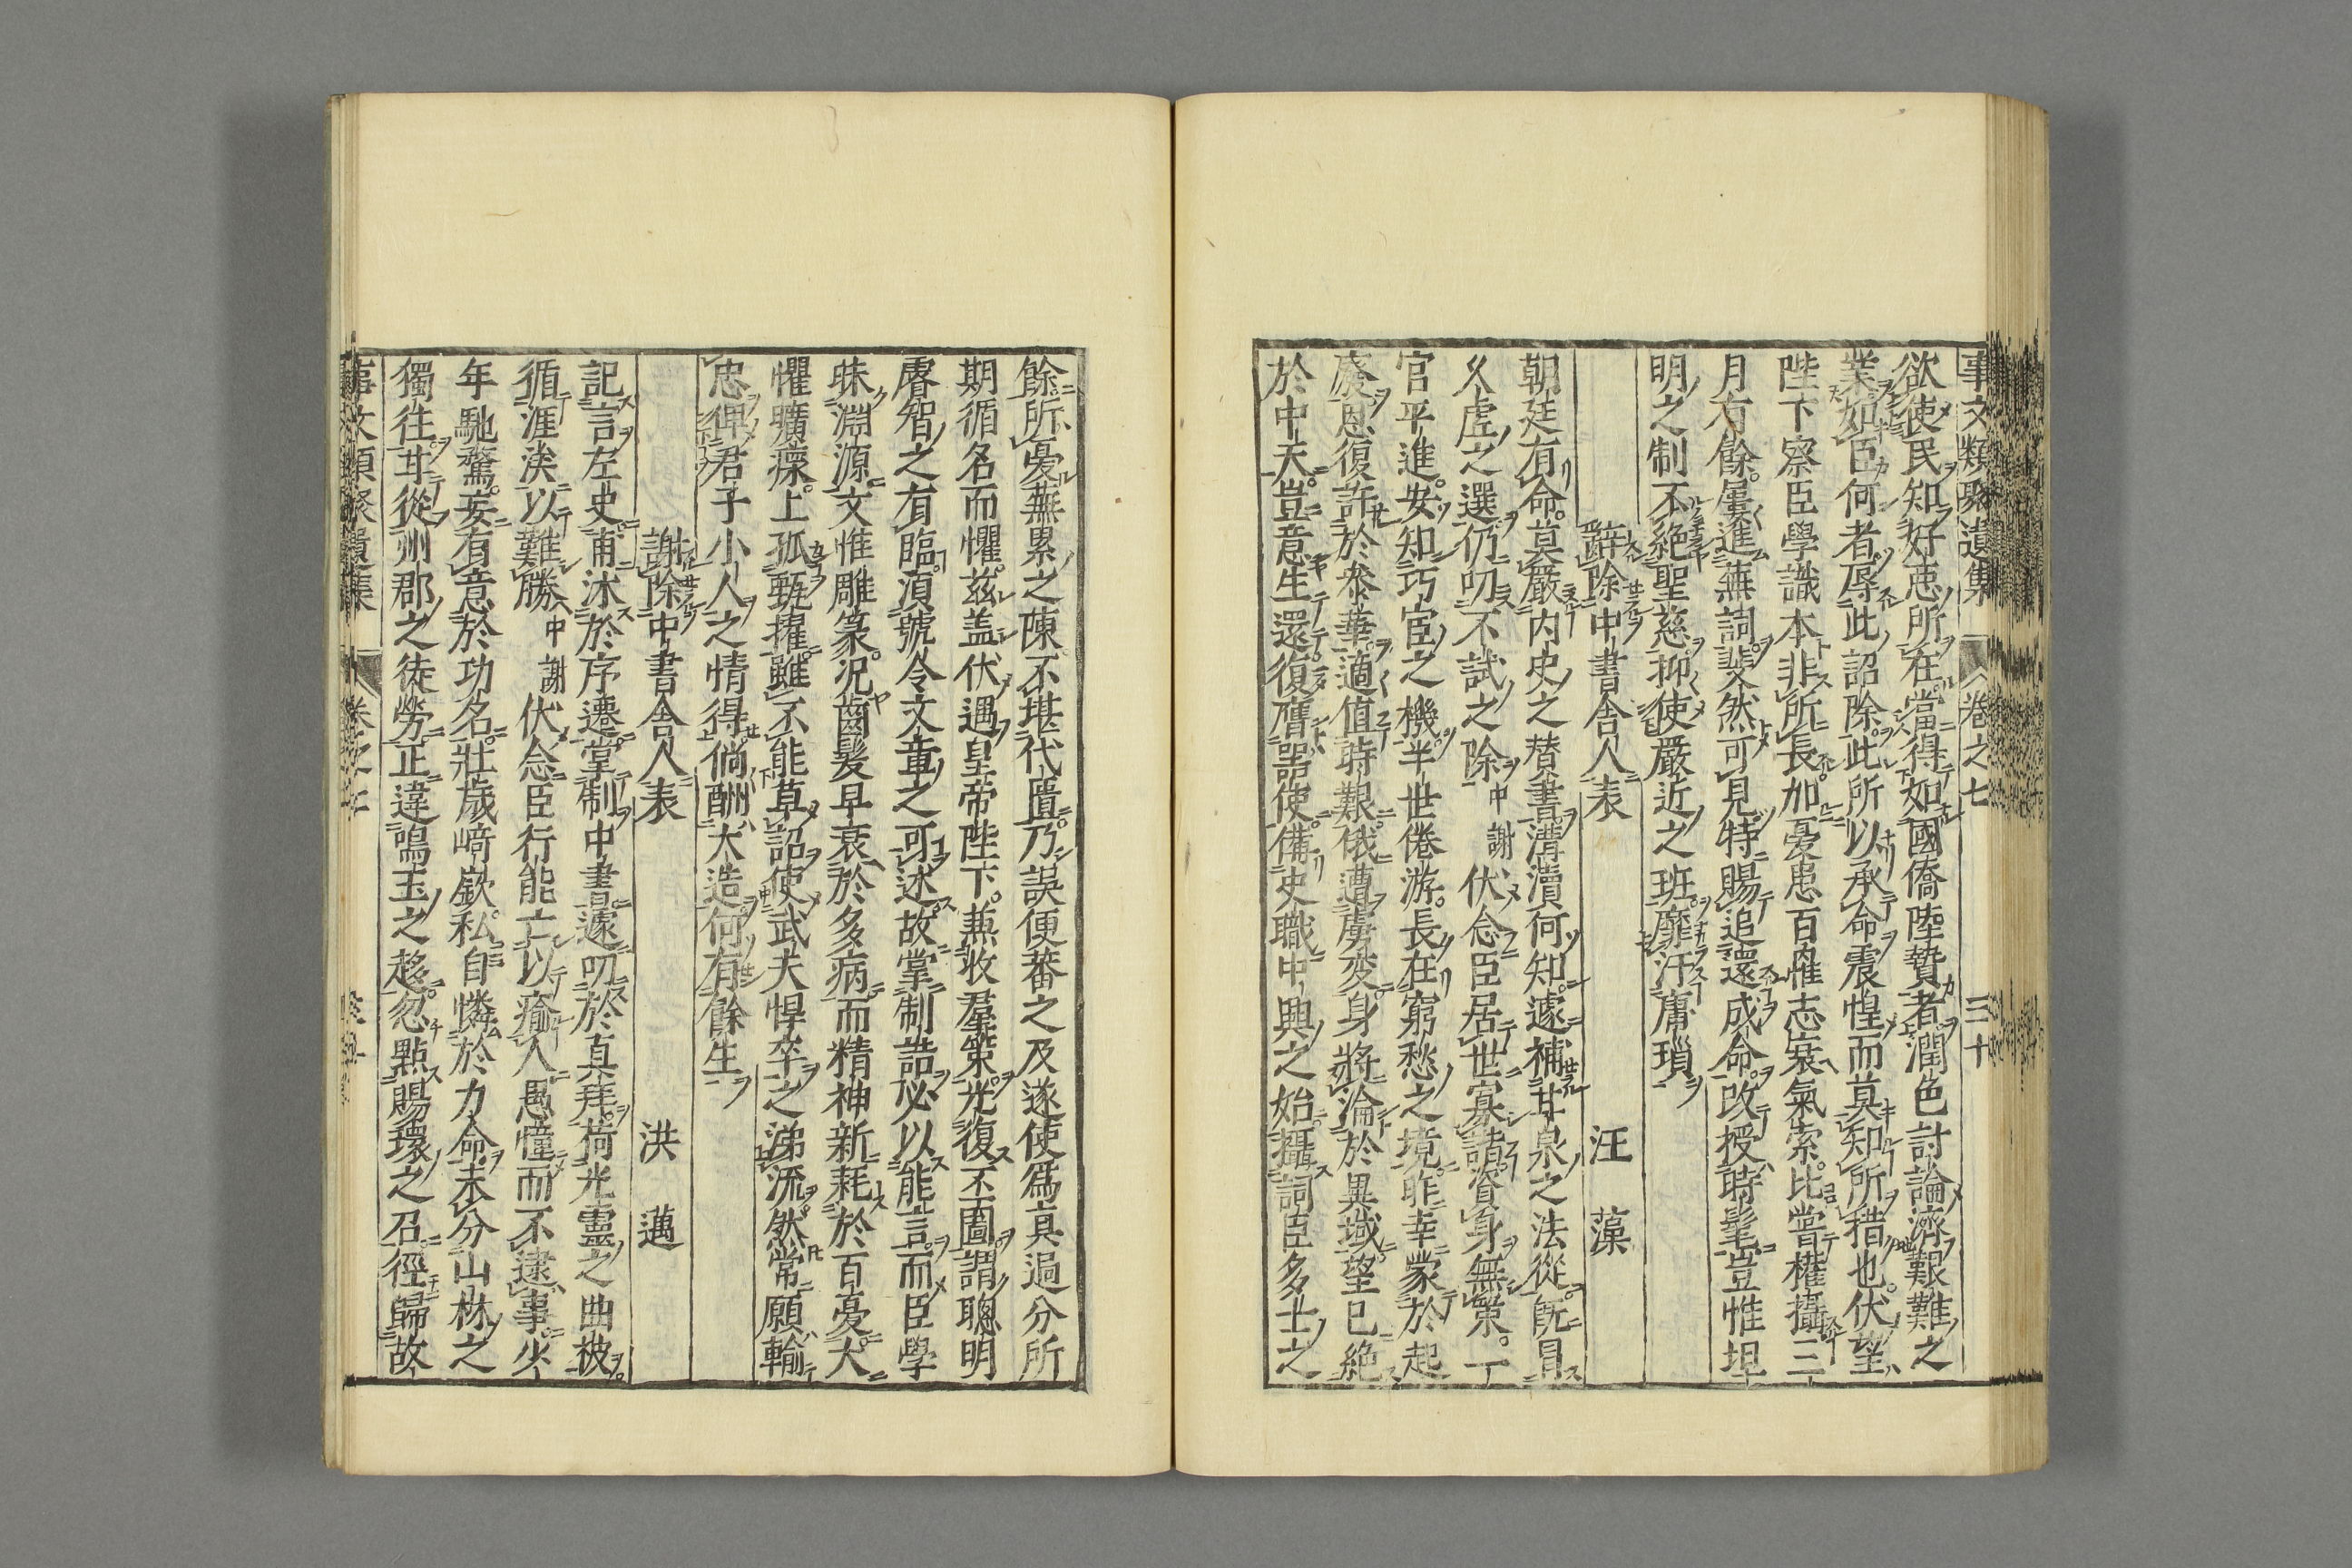 事文類聚遺集 卷之七 三十
欲使民知好惡所在當得如國僑陸贄者潤色討論濟艱難之
業如臣何者辱此詔除此所以承命震惶而莫知所措也伏望
陛下察臣學識本非所長加憂患百罹志衰氣索比嘗權攝三
月有餘屢進蕪詞斐然可見特賜追還成命改授時髦豈惟坦
明之制不絕聖慈抑使嚴近之班靡汙庸瑣
辭除中書舍人表 汪藻
朝廷有命莫嚴內史之替書瀆瀆何知遽補甘泉之法從旣冒
久虛之選仍叨不試之除中謝伏念臣居世寡諧資身無策一
官平進安知巧宦之機半世倦游長在窮愁之境昨幸蒙於起
廢恩復許於泰華適值時艱俄遭虜变身將淪於異域望已絕
於中天豈意生還復膺器使備史職中興之始攝詞臣多士之
餘所憂蕪累之陳不堪代匱乃誤便蕃之及遂使爲眞過分所
期循名而懼茲盖伏遇皇帝陛下兼收羣策光復丕圖謂聰明
睿智之有臨須號令文章之可述故掌制誥必以能言而臣學
昧淵源文惟雕篆況齒髮早衰於多病而精神新耗於百憂大
懼曠瘝上孤甄擢雖不能草詔使武夫悍卒之涕流然常願輸
忠俾君子小人之情得倘酬大造何有餘生
謝除中書舍人表 洪邁
記言左史甫沐於序遷掌制中書遽叨於真拜荷光靈之曲被
循涯涘以難勝中謝伏念臣行能亡以瘉人愚憧而不逮事少
年馳騖妄有意於功名壯歲崎嶔私自憐於力命未分山林之
獨往甘從州郡之徒勞正違鳴玉之趍忽點賜環之召徑歸故